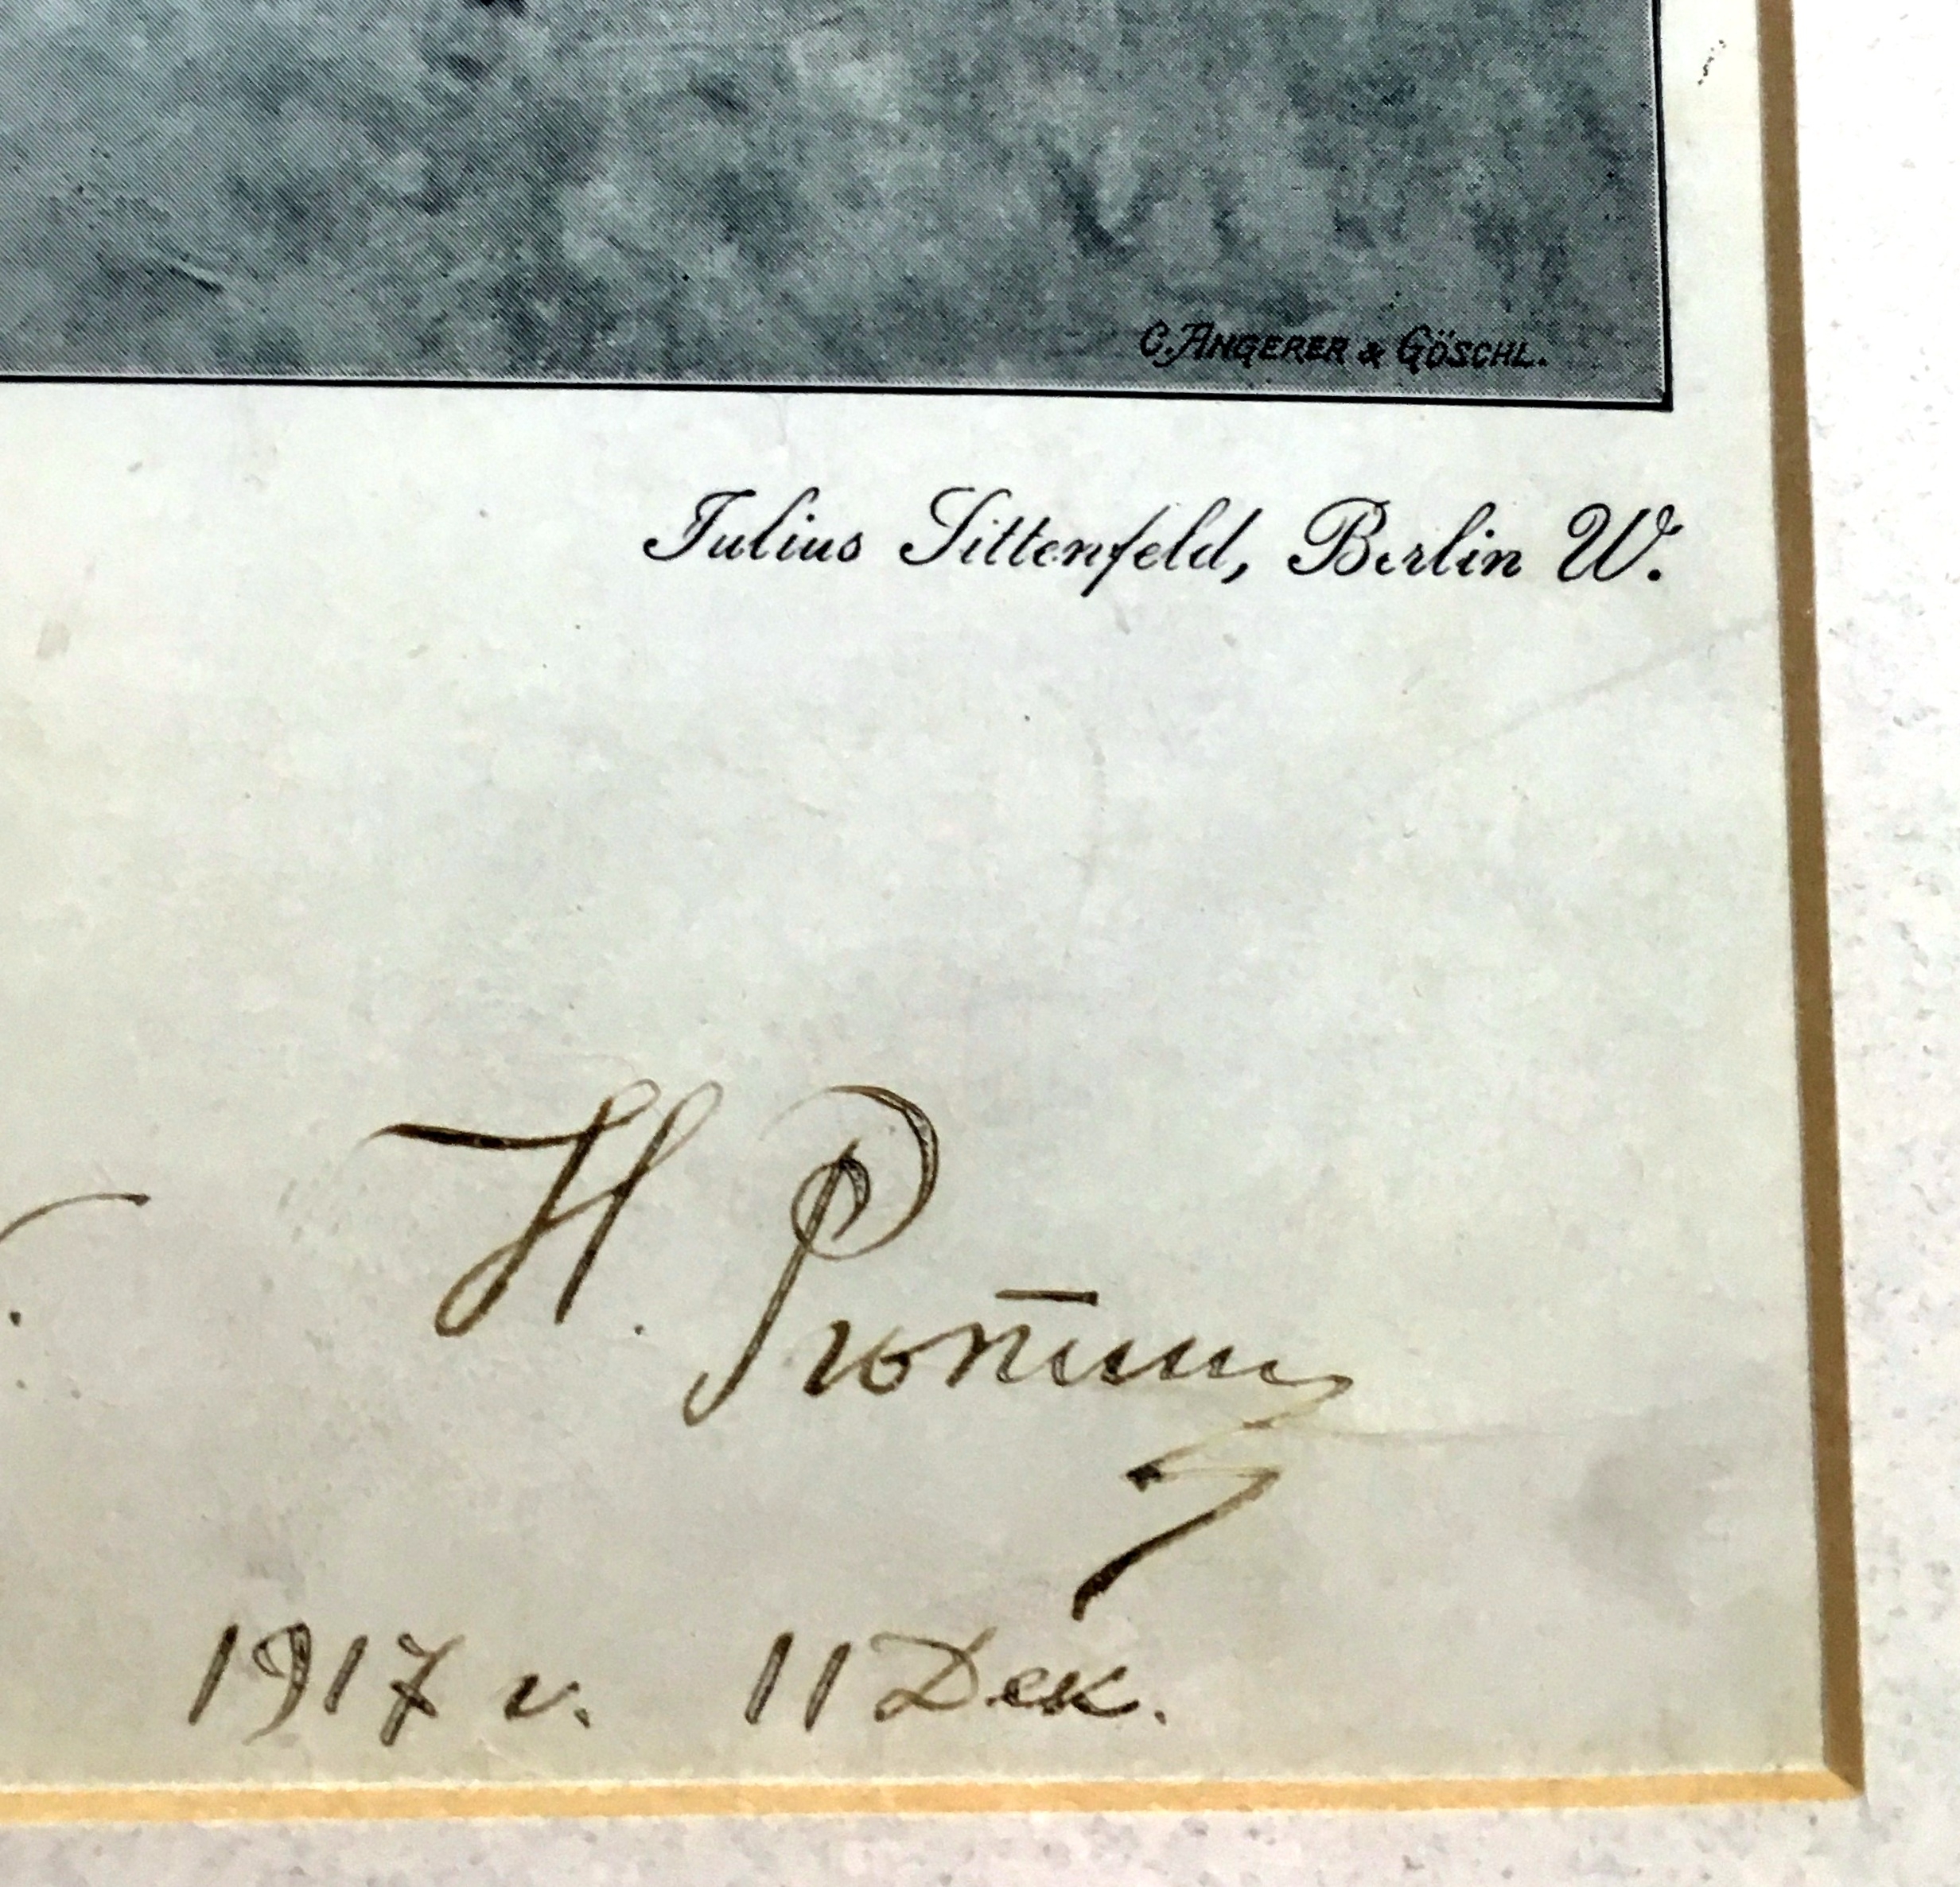 C. ANGERER & GÖSCHL.
Julius Sittenfeld, Berlin W.
Н.
1917 г. 11 Дек.